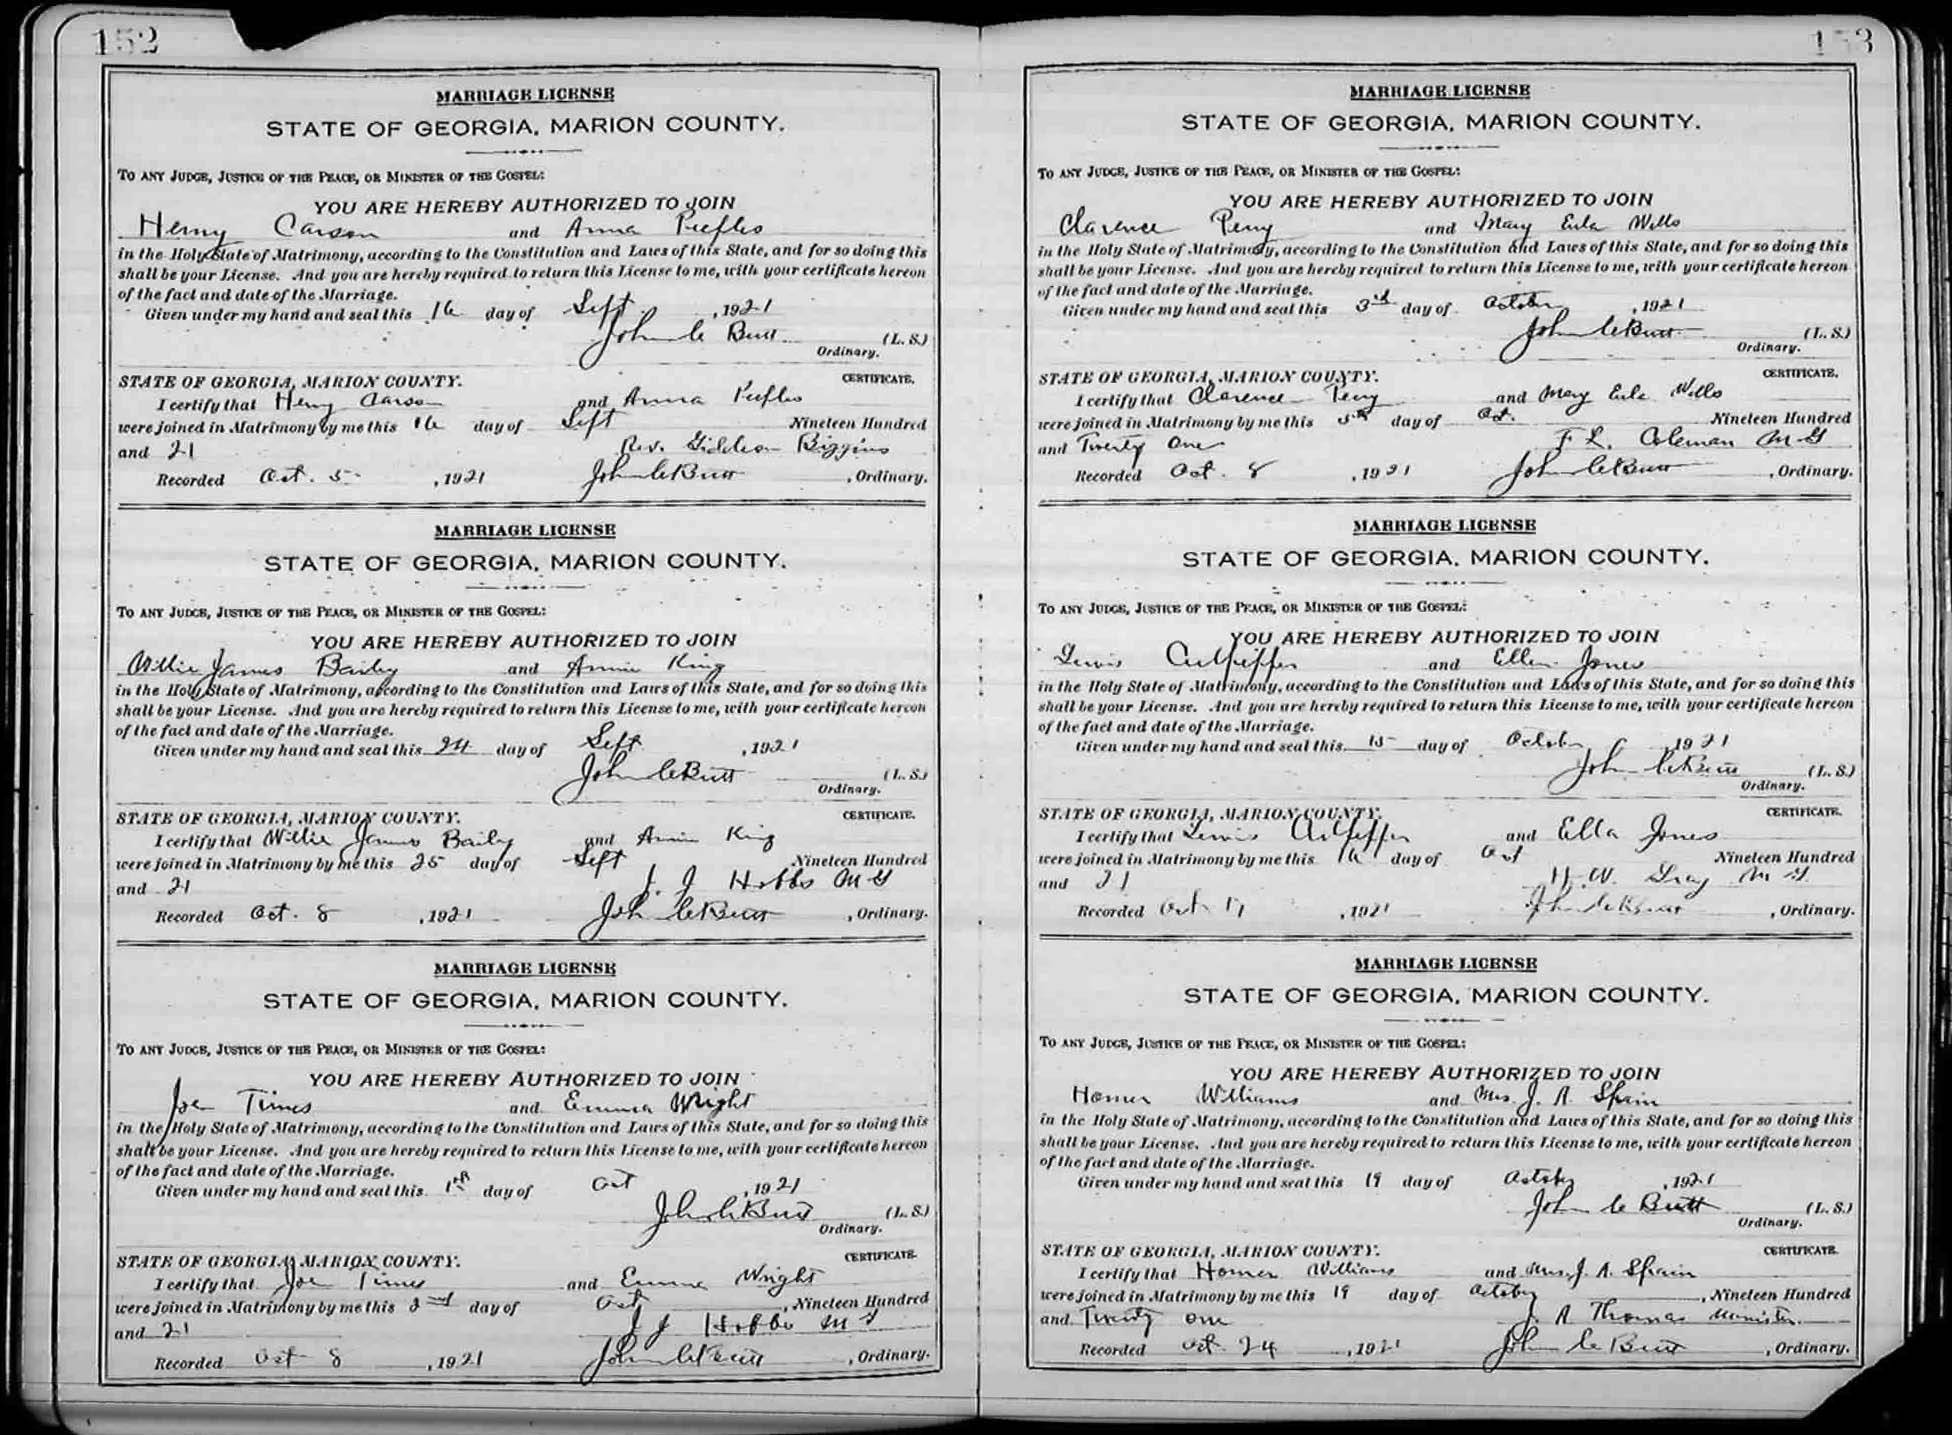 152
MARRIAGE LICENSE
STATE OF GEORGIA, MARION COUNTY.
TO ANY JUDGE, JUSTICE OF THE PEACE, OR MINISTER OF THE GOSPEL:
YOU ARE HEREBY AUTHORIZED TO JOIN
Henry Carson and Anna Peeples
in the Holy State of Matrimony, according to the Constitution and Laws of this State, and for so doing this
shall be your License. And you are hereby required to return this License to me, with your certificate hereon
of the fact and date of the Marriage.
Given under my hand and seal this 16 day of Sept , 1921
John C Butt (L. S.)
Ordinary.
STATE OF GEORGIA, MARION COUNTY. CERTIFICATE.
I certify that Henry Carson and Anna Peeples
were joined in Matrimony by me this 16 day of Sept Nineteen Hundred
and 21 Rev. Giddeon Biggins
Recorded Oct. 5 , 1921 John C Butt , Ordinary.
MARRIAGE LICENSE
STATE OF GEORGIA, MARION COUNTY.
TO ANY JUDGE, JUSTICE OF THE PEACE, OR MINISTER OF THE GOSPEL:
YOU ARE HEREBY AUTHORIZED TO JOIN
Willie James Baily and Annie King
in the Holy State of Matrimony, according to the Constitution and Laws of this State, and for so doing this
shall be your License. And you are hereby required to return this License to me, with your certificate hereon
of the fact and date of the Marriage.
Given under my hand and seal this 24 day of Sept , 1921
John C Butt (L. S.)
Ordinary.
STATE OF GEORGIA, MARION COUNTY. CERTIFICATE.
I certify that Willie James Baily and Annie King
were joined in Matrimony by me this 25 day of Sept Nineteen Hundred
and 21 J. J Hobbs M G
Recorded Oct. 8 , 1921 John C Butt , Ordinary.
MARRIAGE LICENSE
STATE OF GEORGIA, MARION COUNTY.
TO ANY JUDGE, JUSTICE OF THE PEACE, OR MINISTER OF THE GOSPEL:
YOU ARE HEREBY AUTHORIZED TO JOIN
Joe Times and Emma Wright
in the Holy State of Matrimony, according to the Constitution and Laws of this State, and for so doing this
shall be your License. And you are hereby required to return this License to me, with your certificate hereon
of the fact and date of the Marriage.
Given under my hand and seal this 1st day of Oct , 1921
John C Butt (L. S.)
Ordinary.
STATE OF GEORGIA, MARION COUNTY. CERTIFICATE.
I certify that Joe Times and Emma Wright
were joined in Matrimony by me this 2nd day of Oct , Nineteen Hundred
and 21 J J Hobbs M G
Recorded Oct 8 , 1921 John C Butt , Ordinary.
153
MARRIAGE LICENSE
STATE OF GEORGIA, MARION COUNTY.
TO ANY JUDGE, JUSTICE OF THE PEACE, OR MINISTER OF THE GOSPEL:
YOU ARE HEREBY AUTHORIZED TO JOIN
Clarence Perry and Mary Eula Wells
in the Holy State of Matrimony, according to the Constitution and Laws of this State, and for so doing this
shall be your License. And you are hereby required to return this License to me, with your certificate hereon
of the fact and date of the Marriage.
Given under my hand and seal this 3rd day of October , 1921
John C Butt (L. S.)
Ordinary.
STATE OF GEORGIA, MARION COUNTY. CERTIFICATE.
I certify that Clarence Perry and Mary Eula Wells
were joined in Matrimony by me this 5th day of Oct. Nineteen Hundred
and Twenty One F L. Coleman M G
Recorded Oct. 8 , 1921 John C Butt , Ordinary.
MARRIAGE LICENSE
STATE OF GEORGIA, MARION COUNTY.
TO ANY JUDGE, JUSTICE OF THE PEACE, OR MINISTER OF THE GOSPEL:
YOU ARE HEREBY AUTHORIZED TO JOIN
Lewis Culpepper and Ellen Jones
in the Holy State of Matrimony, according to the Constitution and Laws of this State, and for so doing this
shall be your License. And you are hereby required to return this License to me, with your certificate hereon
of the fact and date of the Marriage.
Given under my hand and seal this 15 day of October 1921
John C Butt (L. S.)
Ordinary.
STATE OF GEORGIA, MARION COUNTY. CERTIFICATE.
I certify that Lewis Culpepper and Ella Jones
were joined in Matrimony by me this 16 day of Oct Nineteen Hundred
and 21 H. W. Gray M G
Recorded Oct 17 , 1921 John C Butt , Ordinary.
MARRIAGE LICENSE
STATE OF GEORGIA, MARION COUNTY.
TO ANY JUDGE, JUSTICE OF THE PEACE, OR MINISTER OF THE GOSPEL:
YOU ARE HEREBY AUTHORIZED TO JOIN
Homer Williams and Mrs. J. A. Spain
in the Holy State of Matrimony, according to the Constitution and Laws of this State, and for so doing this
shall be your License. And you are hereby required to return this License to me, with your certificate hereon
of the fact and date of the Marriage.
Given under my hand and seal this 19 day of October , 1921
John C Butt (L. S.)
Ordinary.
STATE OF GEORGIA, MARION COUNTY. CERTIFICATE.
I certify that Homer Williams and Mrs. J. A. Spain
were joined in Matrimony by me this 19 day of October , Nineteen Hundred
and Twenty one J. A Thomas Minister.
Recorded Oct. 24 , 1921 John C Butt , Ordinary.